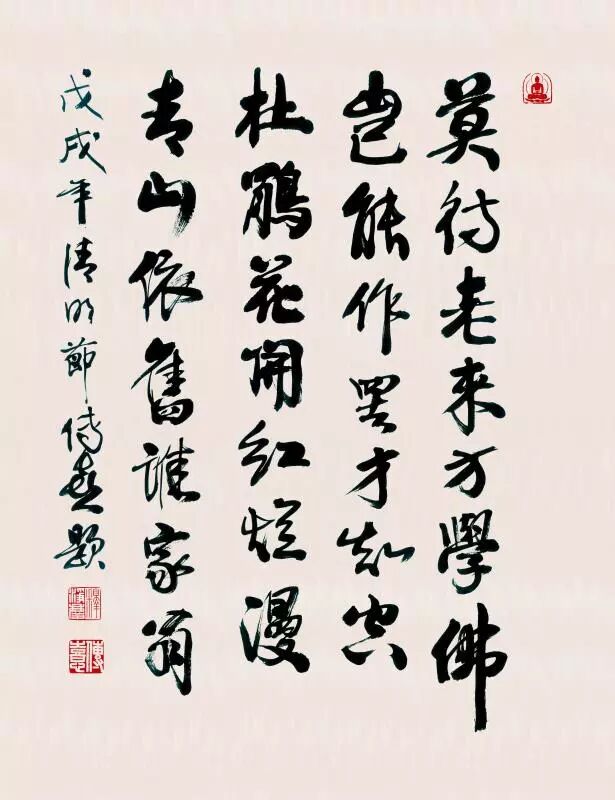 莫待老来方學佛
岂能作罢才知空
杜鵑花開红烂漫
青山依舊誰家翁
戊戌年清明節傳喜題
傳喜